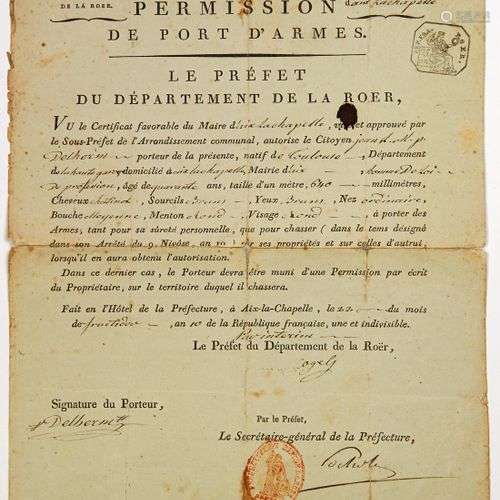 DE LA ROER.
PERMISSION
DE PORT D'ARMES.
LE PRÉFET
DU DÉPARTEMENT DE LA ROER,
VU le Certificat favorable du Maire d'aix lachapelle, et approuvé par
le Sous-Préfet de l'Arrandissement communal, autorise le Citoyen
Delherm porteur de la présente, natif de toulouse Département
de domicilié à aixlachapelle, Mairie d'aix
de profession, âgé de quarante ans, taille d'un mètre, 640 millimètres,
Cheveux chatains Sourcils bruns, Yeux bruns Nez ordinaire,
Bouche moyenne, Menton rond, Visage rond à porter des
Armes, tant pour sa sûreté personnelle, que pour chasser (dans le tems désigné
dans son Arrêté du 9 Nivôse, an 10) sur ses propriétés et sur celles d'autrui,
lorsqu'il en aura obtenu l'autorisation.
Dans ce dernier cas, le Porteur devra être muni d'une Permission par écrit
du Propriétaire, sur le territoire duquel il chassera.
Fait en l'Hôtel de la Préfecture, à Aix-la-Chapelle, le 22 du mois
de fructidor, an 10 de la République française, une et indivisible.
Le Préfet du Département de la Roër,
Signature du Porteur,
Delherm
Par le Préfet,
Le Secrétaire-général de la Préfecture,